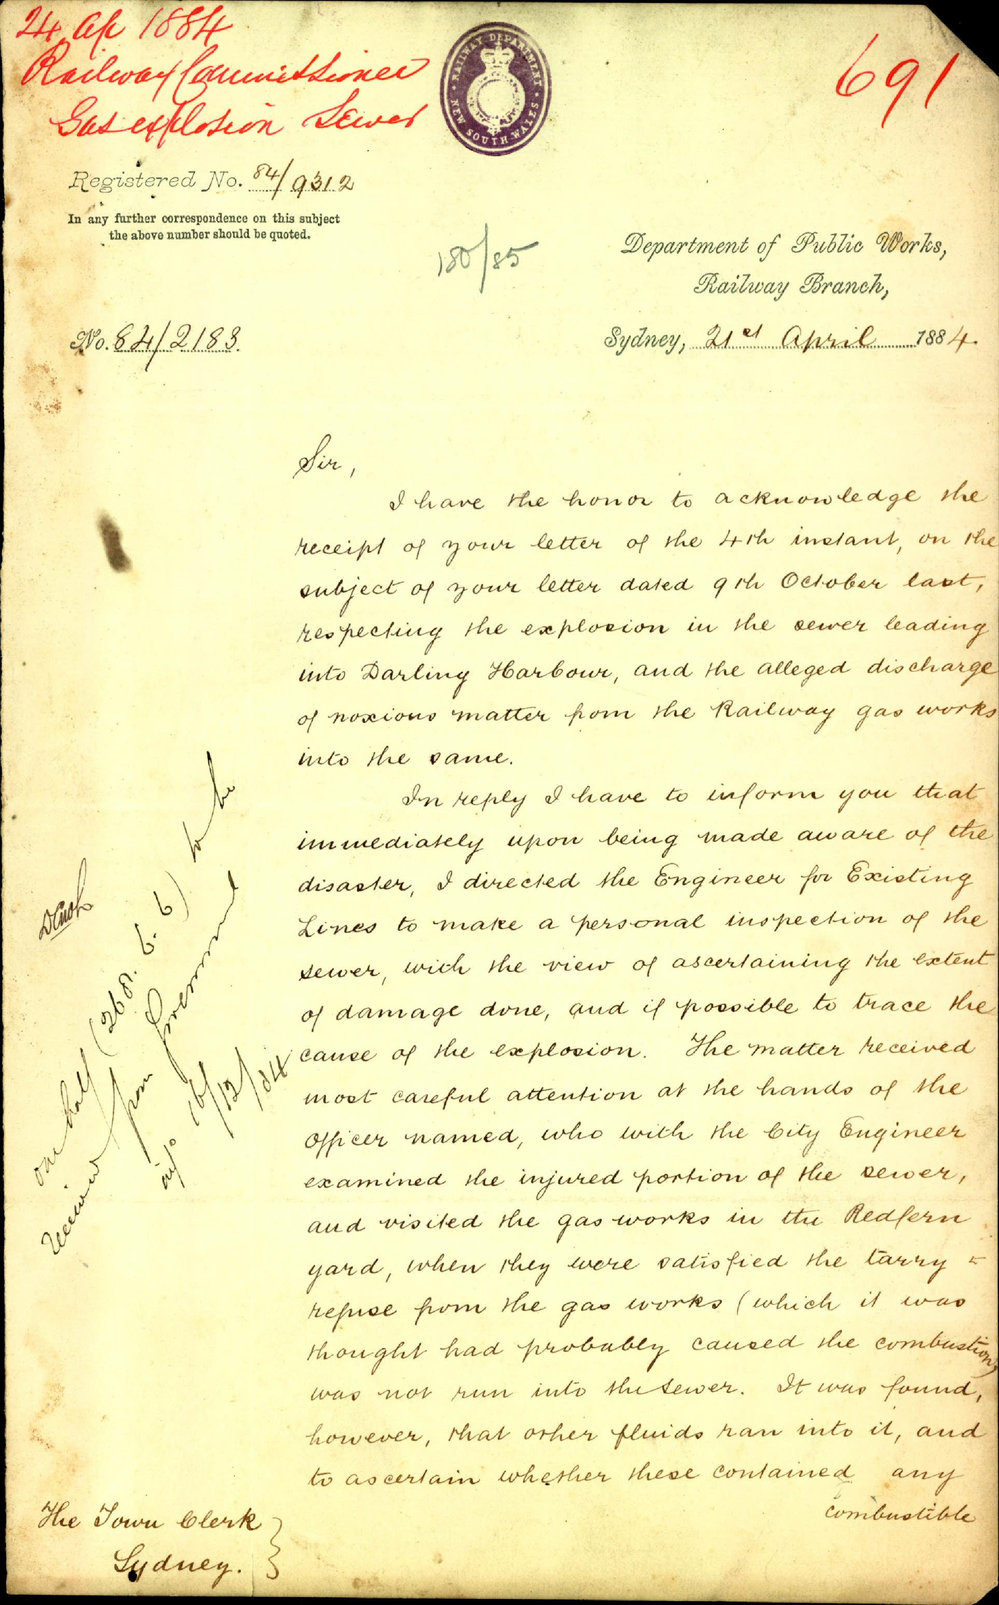 24 Ap 1884
Railway Commissioner
Gas explosion Sewer
691
RAILWAY DEPARTMENT
NEW SOUTH WALES
Registered No. 84/9312
In any further correspondence on this subject
the above number should be quoted.
180/85
Department of Public Works,
Railway Branch,
No. 84/2183.
Sydney, 21st April 1884.
Sir,
I have the honor to acknowledge the
receipt of your letter of the 4th instant, on the
subject of your letter dated 9th October last,
respecting the explosion in the sewer leading
into Darling Harbour, and the alleged discharge
of noxious matter from the Railway gas works
into the same.
In reply I have to inform you that
immediately upon being made aware of the
disaster, I directed the Engineer for Existing
Lines to make a personal inspection of the
sewer, with the view of ascertaining the extent
of damage done, and if possible to trace the
cause of the explosion. The matter received
most careful attention at the hands of the
Officer named, who with the City Engineer
examined the injured portion of the sewer,
and visited the gas works in the Redfern
yard, when they were satisfied the tarry
refuse from the gas works (which it was
thought had probably caused the combustion)
was not run into the sewer. It was found,
however, that other fluids ran into it, and
to ascertain whether these contained any
combustible
one half (268. 6. 6) to be
from Government
16/12/84
The Town Clerk
Sydney.